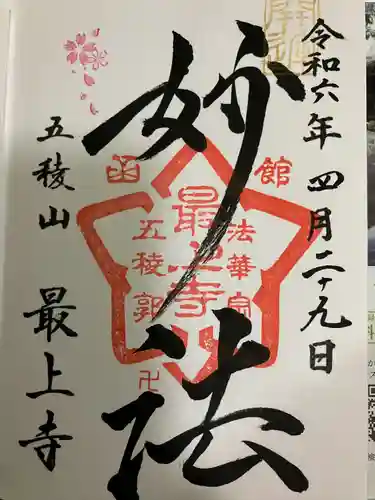 令和六年 四月二十九日
妙法
五稜山 最上寺
函館
法華宗
最上寺
五稜郭
卍